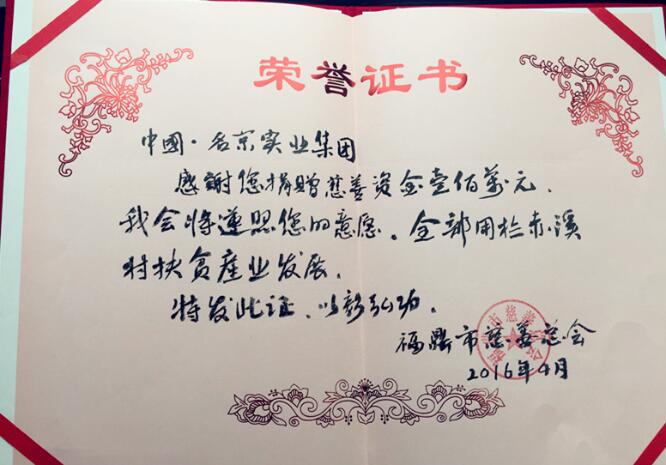 荣誉证书
中國·名京实业集团
感謝您捐贈慈善资金壹佰萬元.
我会将遵照您的意愿。全部用於赤溪
村扶贫產业发展.
特发此证.以彰弘功.
福鼎市慈善总会
2016年4月